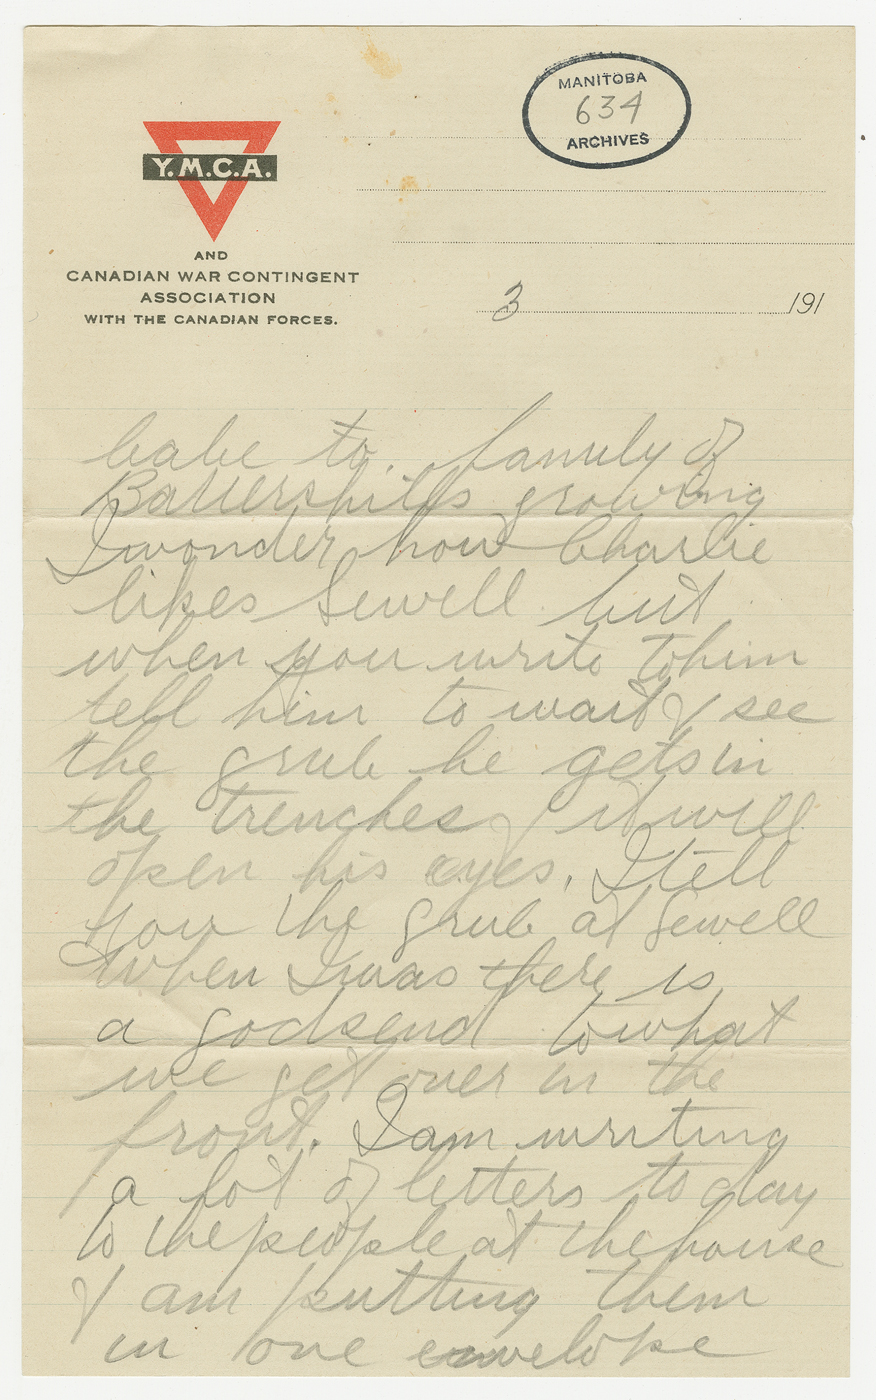 MANITOBA
634
ARCHIVES
Y.M.C.A.
AND
CANADIAN WAR CONTINGENT
ASSOCIATION
WITH THE CANADIAN FORCES.
3 191
babe to. family of
Battershills growing
I wonder how Charlie
likes Sewell but
when you write to him
tell him to wait & see
the grub he gets in
the trenches & it will
open his eyes. I tell
you the grub at Sewell
when I was there is
a godsend to what
we get over in the
front. I am writing
a lot of letters to day
to the people at the house
& am putting them
in one envelope